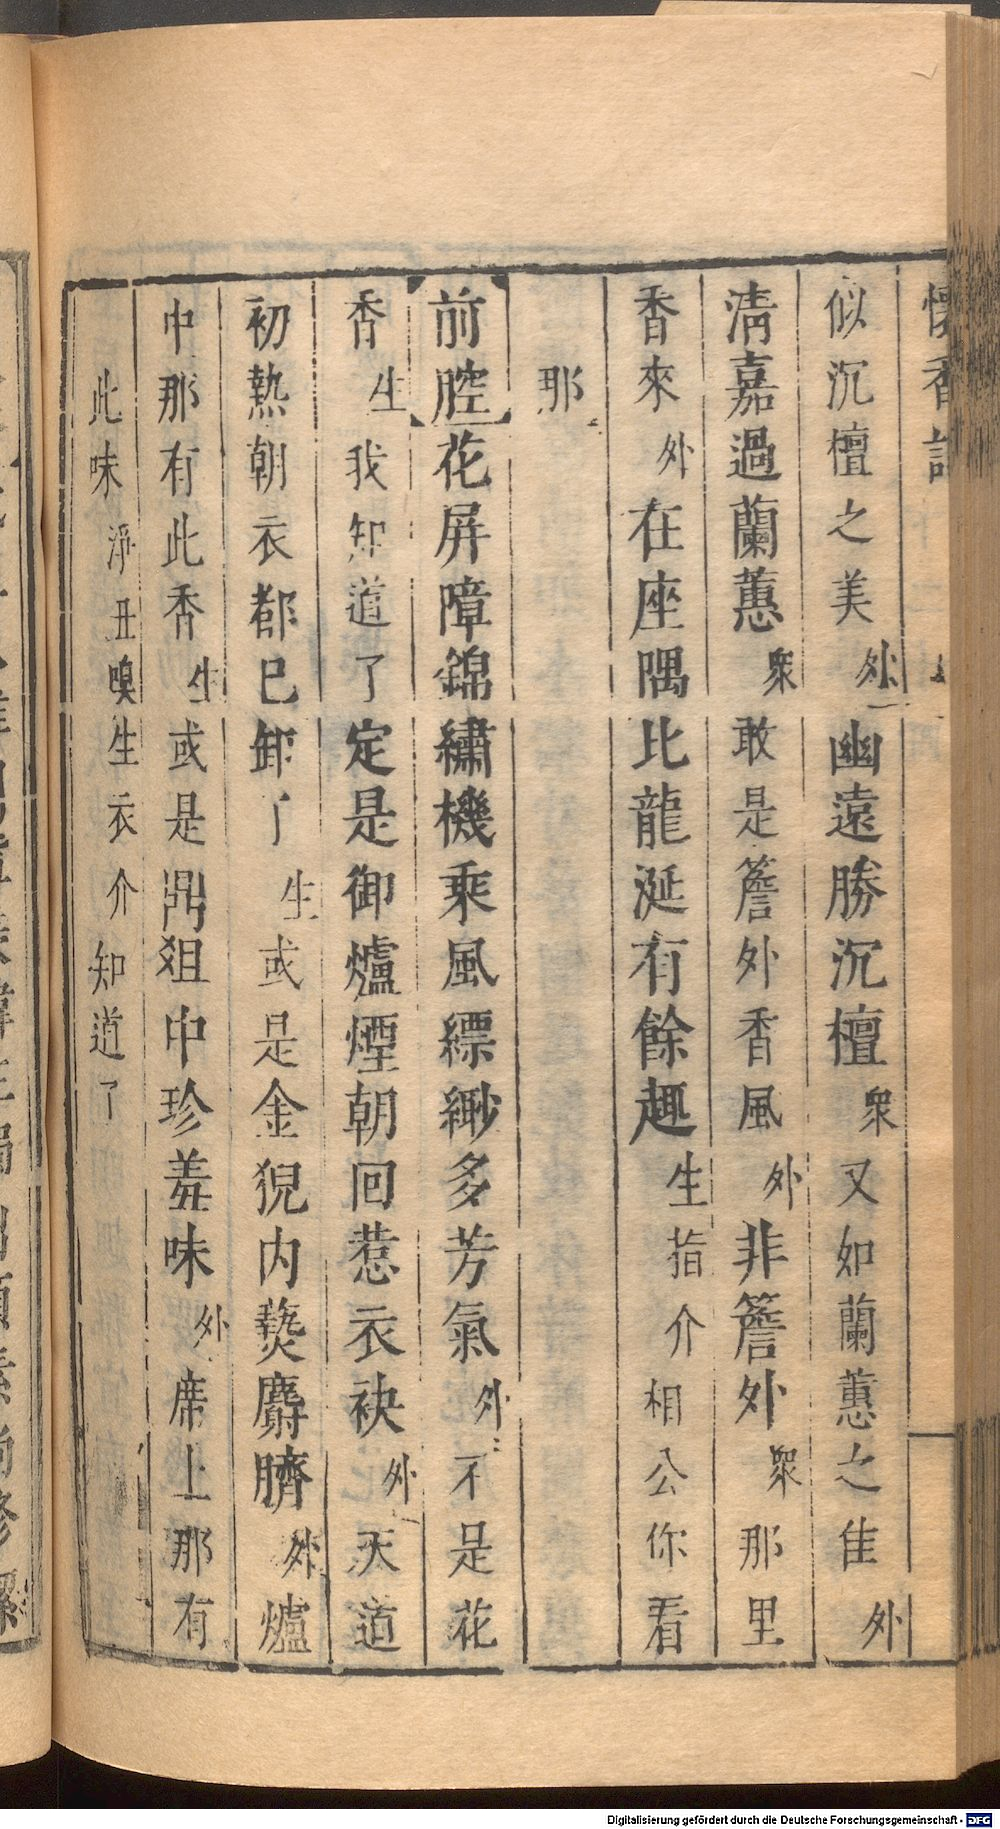 懷香記
似沉檀之美外幽遠勝沉檀衆又如蘭蕙之佳外
淸嘉過蘭蕙衆敢是簷外香風外非簷外衆那里
香來外在座隅比龍涎有餘趣生指介相公你看
那
前腔花屏障錦繡機乘風縹緲多芳氣外不是花
香生我知道了定是御爐煙朝回惹衣袂外天道
初熱朝衣都已卸了生或是金猊内爇麝臍外爐
中那有此香生或是鼎俎中珍羞味外席上那有
此味淨丑嗅生衣介知道了
Digitalisierung gefördert durch die Deutsche Forschungsgemeinschaft - DFG